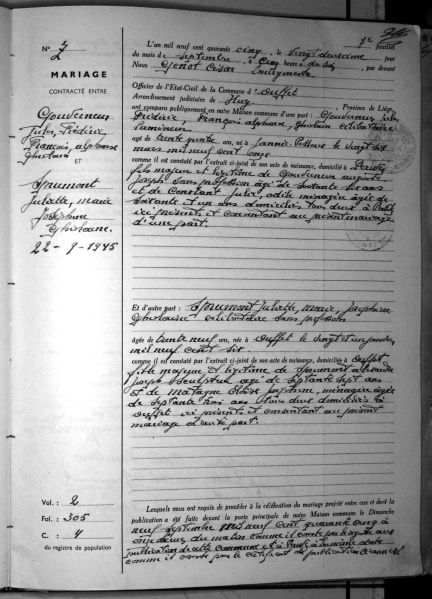 7e feuillet
N° 7
MARIAGE
CONTRACTÉ ENTRE
Gouverneur
Jules, Frédéric,
François, alphonse
Ghislain
ET
Sprumont
Juliette, marie
Joséphine
Ghislaine.
22-9-1945
L'an mil neuf cent quarante cinq, le vingt deuxième jour
du mois de septembre, à cinq heures du soir, par devant
Nous Genot César Bourgmestre
Officier de l'Etat-Civil de la Commune d'Ouffet
Arrondissement judiciaire de Huy, Province de Liége,
ont comparu publiquement en notre Maison commune d'une part : Gouverneur Jules
Frédéric, François alphonse, Ghislain célibataire
de trente quatre ans, né à le vingt six
mars mil neuf cent onze
comme il est constaté par l'extrait ci-joint de son acte de naissance, domicilié à
fils majeur et légitime de Gouverneur auguste
Joseph sans profession âgé de soixante six ans
et de Constant Julie, ménagère âgée de
soixante et un ans domiciliés tous deux à
ici présents et consentant au présent mariage
d'une part.
Et d'autre part : Sprumont Juliette, marie, Joséphine
Ghislaine célibataire sans profession
âgée de trente neuf ans, née à Ouffet le vingt et un
mil neuf cent six
comme il est constaté par l'extrait ci-joint de son acte de naissance, domiciliée à Ouffet
fille majeure et légitime de Sprumont
Joseph âgé de septante sept ans
et de joséphine, ménagère âgée
de septante trois ans tous deux domiciliés à
Ouffet ici présents et consentant au présent
mariage d'autre part.
Vol. : 2
Fol. : 305
C. : 4
du registre de population
Lesquels nous ont requis de procéder à la célébration du mariage projeté entre eux et dont la
publication a été faite devant la porte principale de notre Maison commune le Dimanche
neuf septembre mil neuf cent quarante cinq à
onze heures du matin comme il conste par le registre aux
publications de cette commune et à
comme il conste par le certificat de publication ci annexé